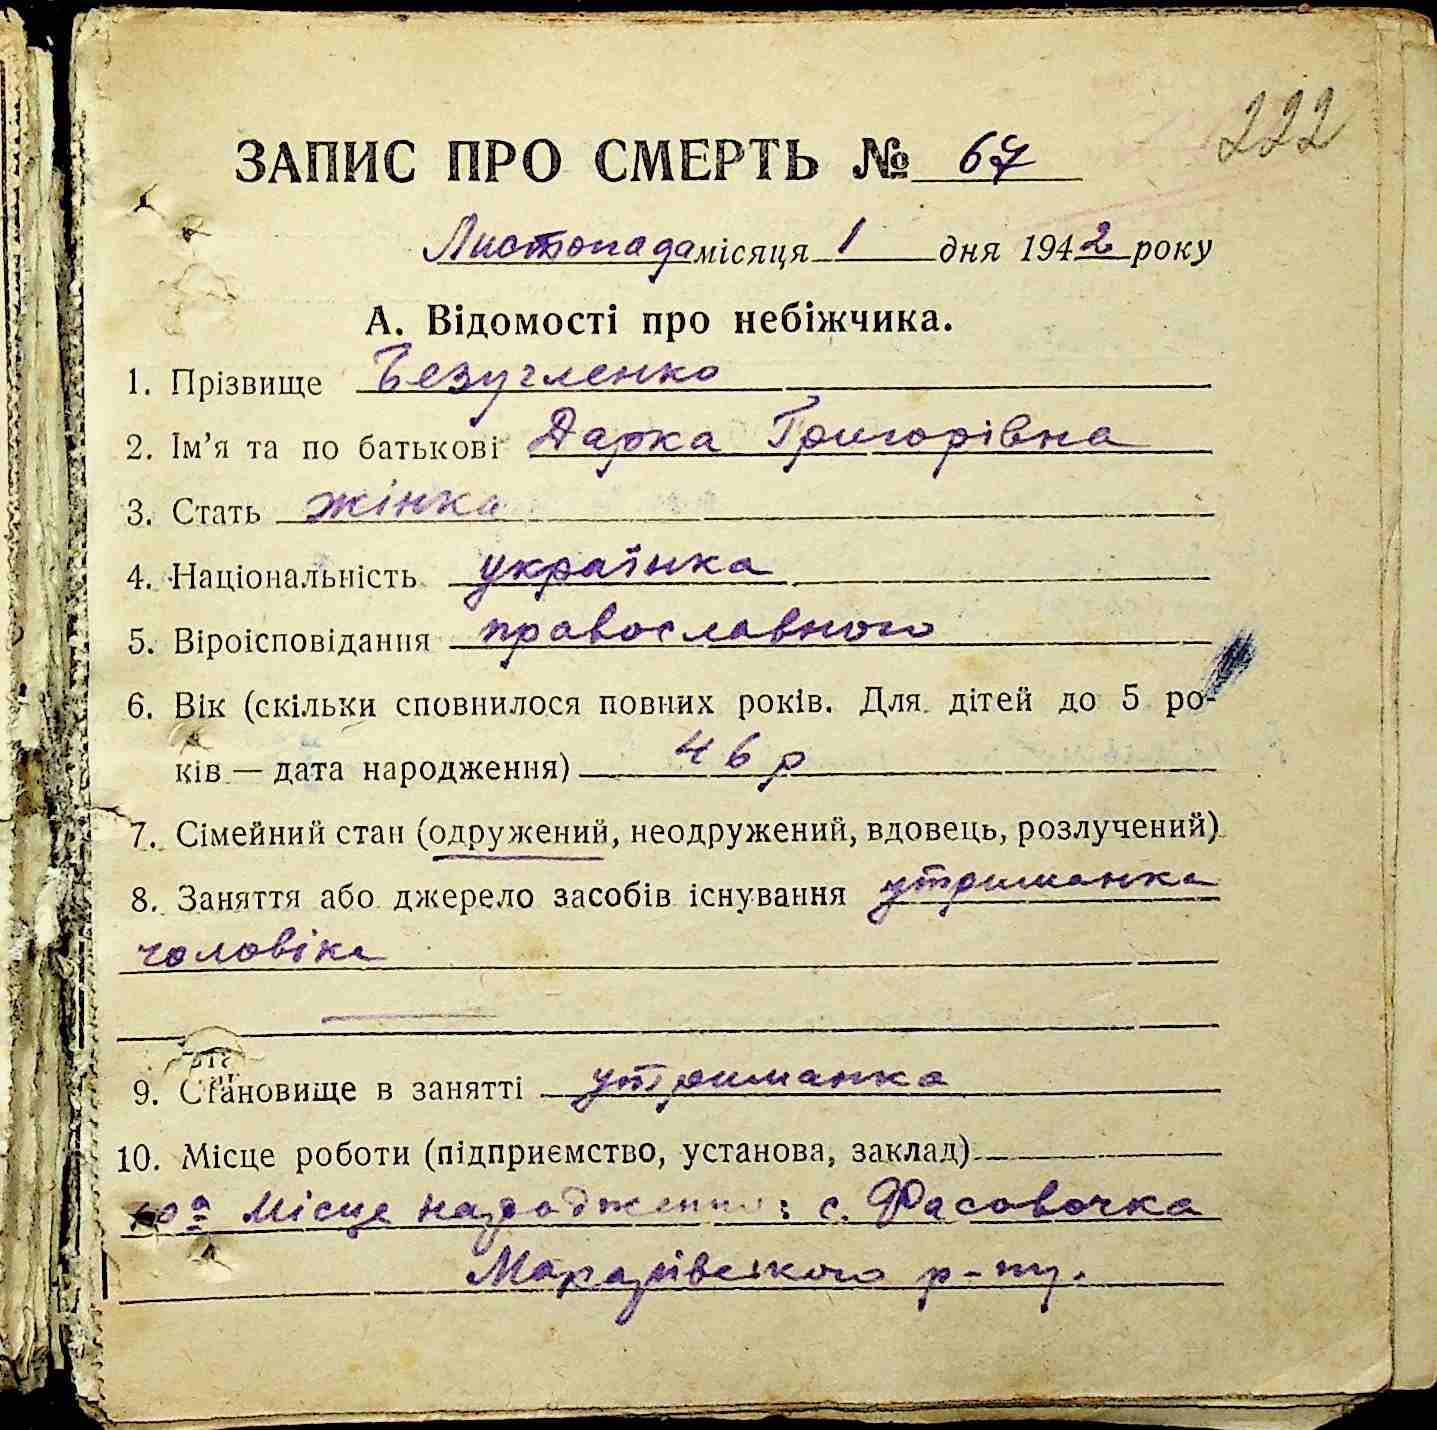 222
ЗАПИС ПРО СМЕРТЬ № 67
Листопада місяця 1 дня 1942 року
А. Відомості про небіжчика.
1. Прізвище Безугленко
2. Ім’я та по батькові Дарка Григорівна
3. Стать жінка
4. Національність українка
5. Віроісповідання православного
6. Вік (скільки сповнилося повних років. Для дітей до 5 ро-
ків — дата народження) 46 р
7. Сімейний стан (одружений, неодружений, вдовець, розлучений)
8. Заняття або джерело засобів існування утриманка
чоловіка
9. Становище в занятті утриманка
10. Місце роботи (підприємство, установа, заклад)
10а Місце народження: с. Фасовочка
р-ну.